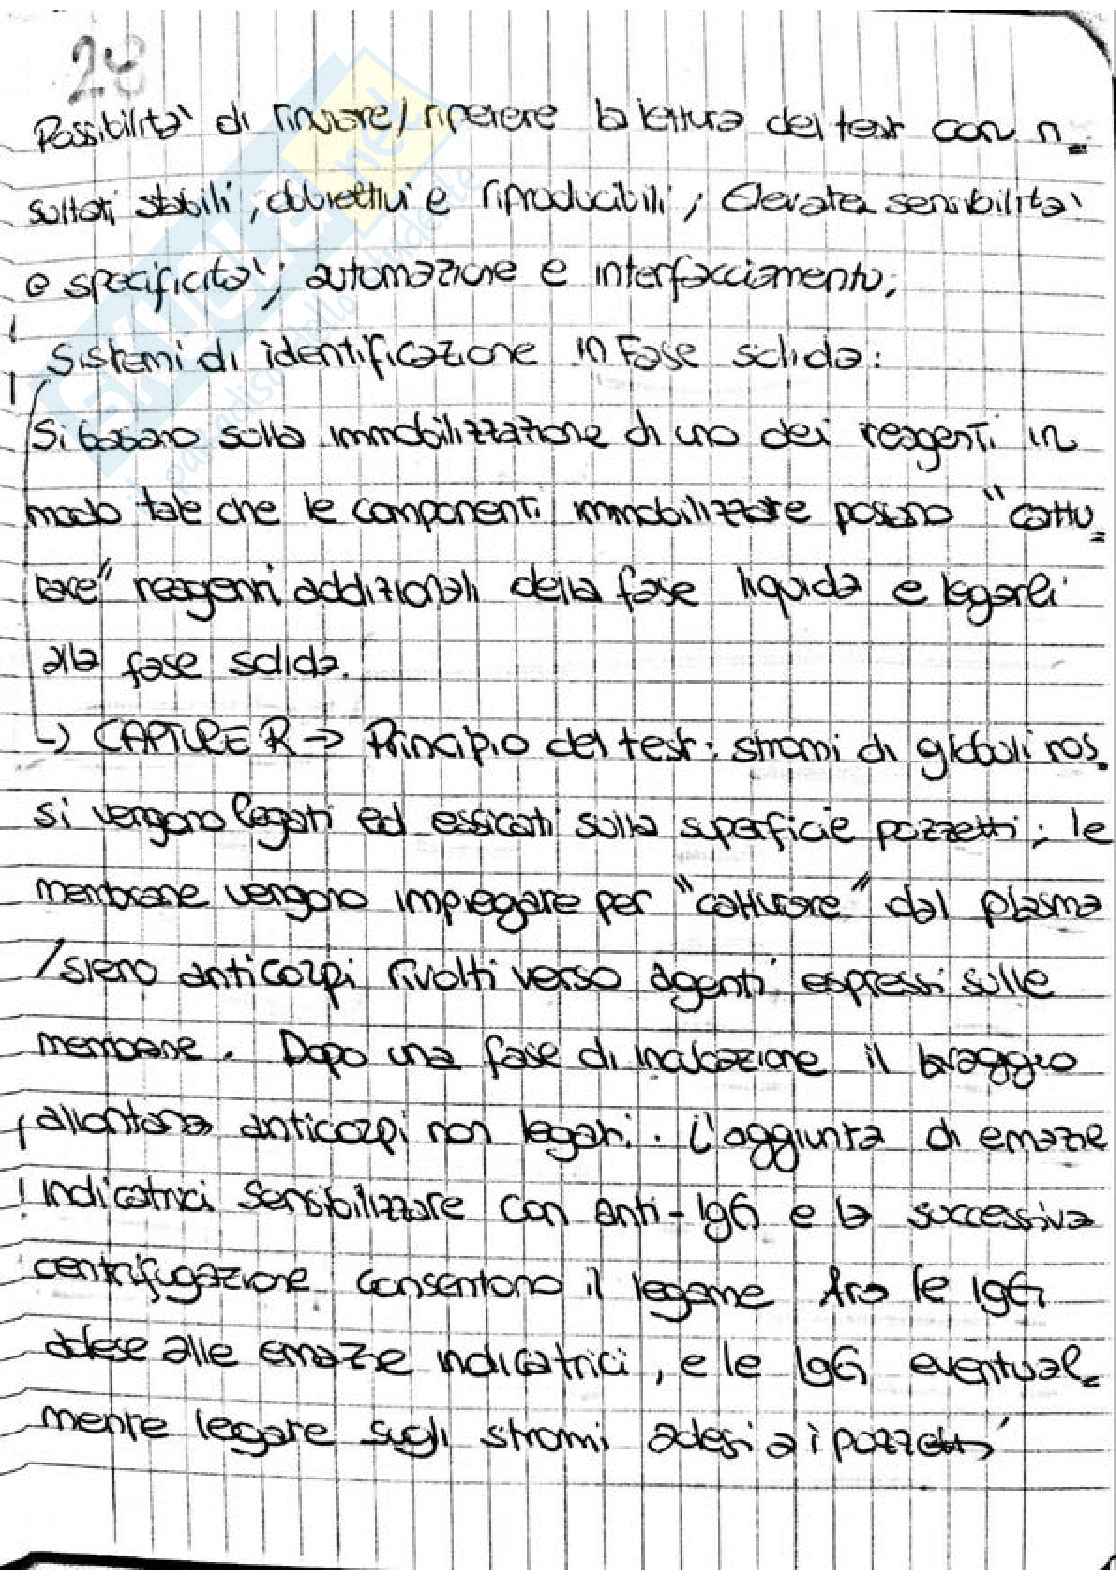 28
Possibilità di rinviare/ripetere la lettura del test con ri=
sultati stabili, obbiettivi e riproducibili; Elevata sensibilità
e specificità; automazione e interfacciamento;
Sistemi di identificazione in Fase solida:
Si basano sulla immobilizzazione di uno dei reagenti in
modo tale che le componenti immobilizzate possano "cattu=
rare" reagenti addizionali della fase liquida e legarli
alla fase solida.
↳ CAPTURE R → Principio del test: stromi di globuli ros=
si vengono legati ed essicati sulla superficie pozzetti; le
membrane vengono impiegate per "catturare" dal plasma
/siero anticorpi rivolti verso agenti espressi sulle
membrane. Dopo una fase di incubazione il lavaggio
allontana anticorpi non legati. L'aggiunta di emazie
indicatrici sensibilizzate con anti-IgG e la successiva
centrifugazione consentono il legame tra le IgG
adese alle emazie indicatrici, e le IgG eventual=
mente legate sugli stromi adesi ai pozzetti